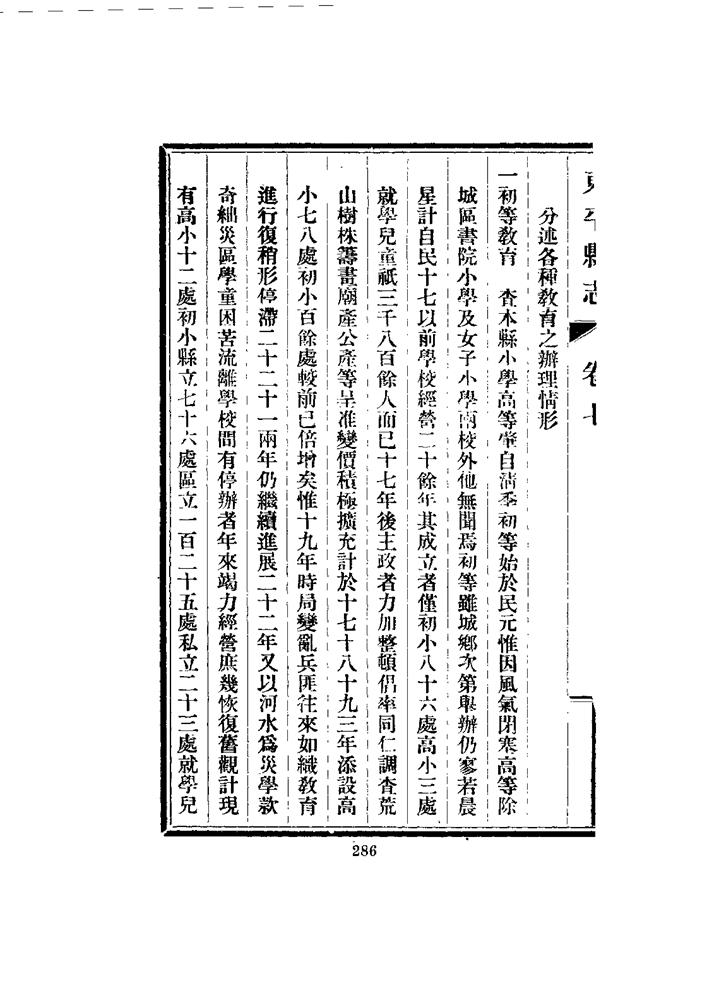 東平縣志 卷七
分述各種教育之辦理情形
一初等教育 查本縣小學高等肇自淸季初等始於民元惟因風氣閉塞高等除
城區書院小學及女子小學兩校外他無聞焉初等雖城鄉次第舉辦仍寥若晨
星計自民十七以前學校經營二十餘年其成立者僅初小八十六處高小三處
就學兒童祇三千八百餘人而已十七年後主政者力加整頓倡率同仁調查荒
山樹株籌畫廟產公產等呈准變價積極擴充計於十七十八十九三年添設高
小七八處初小百餘處較前已倍增矣惟十九年時局變亂兵匪往來如織教育
進行復稍形停滯二十二十一兩年仍繼續進展二十二年又以河水爲災學款
奇絀災區學童困苦流離學校間有停辦者年來竭力經營庶幾恢復舊觀計現
有高小十二處初小縣立七十六處區立一百二十五處私立二十三處就學兒
286